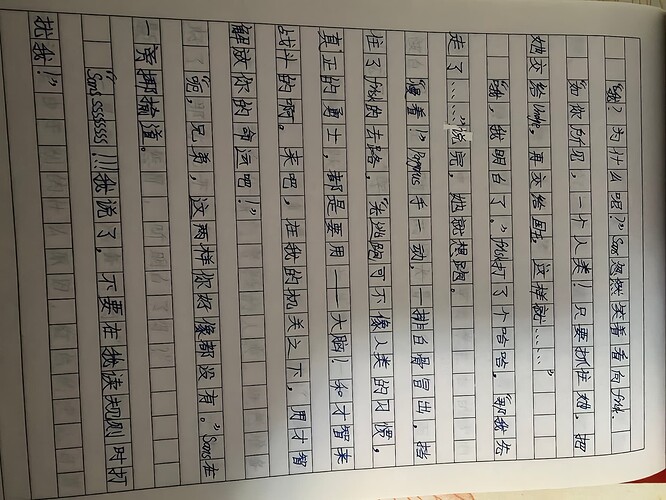 “哦？为什么呢？”Sans忽然笑着看向frisk.
“如你所见，一个人类！只要抓住她，把
她交给Undy，再交给国王，这样就……”
“哦，我明白了。”frisk打了个哈哈，“那我先
走了……”说完，她就想跑。
“慢着！”Papyrus手一动，一排白骨冒出，挡
住了frisk的去路，“先逃跑可不像人类的习惯，
真正的勇士，都是要用——大脑！和才智来
战斗的啊。来吧，在我的机关之下，用才智
解放你的命运吧！”
“呃，兄弟，这两样你好像都没有。”Sans在
一旁揶揄道。
“Sansssssssss!!!我说了，不要在我读规则时打
扰我！”